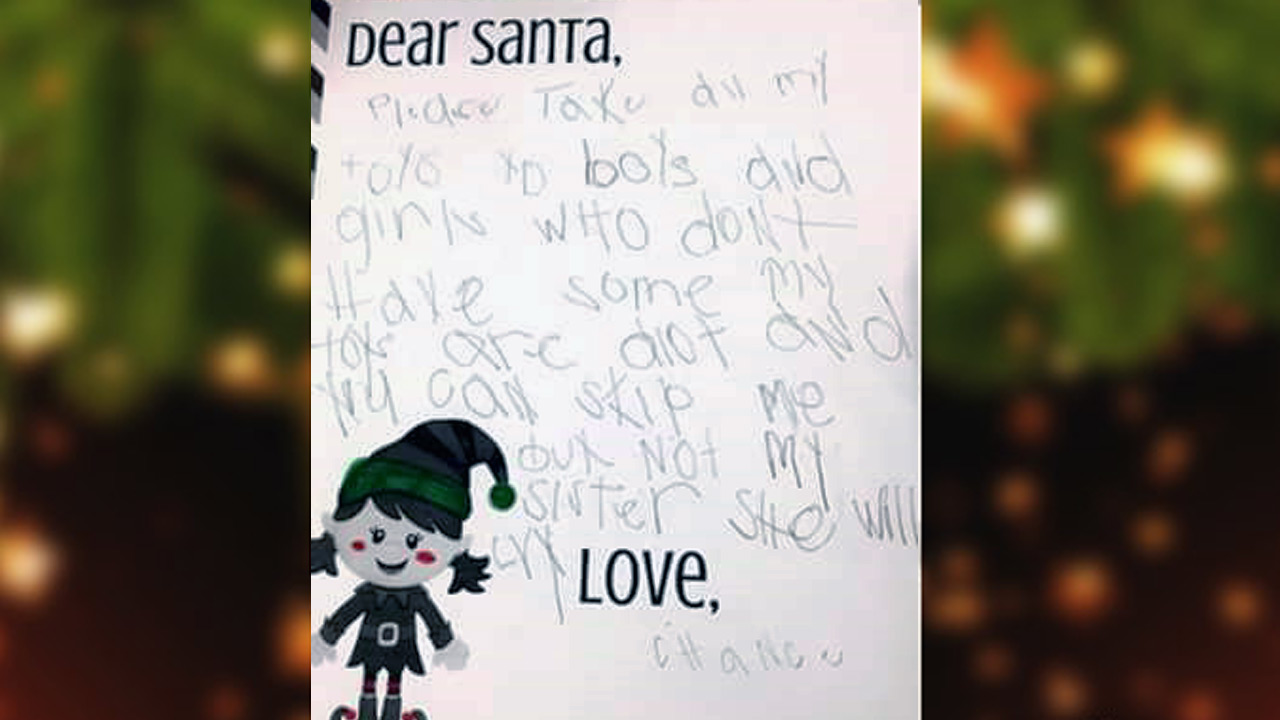 Dear Santa,
Please Take all my
toys to boys and
girls WHO dont
Have some my
toys are alot and
you can skip me
but Not my
sister She will
cry
Love,
CHance